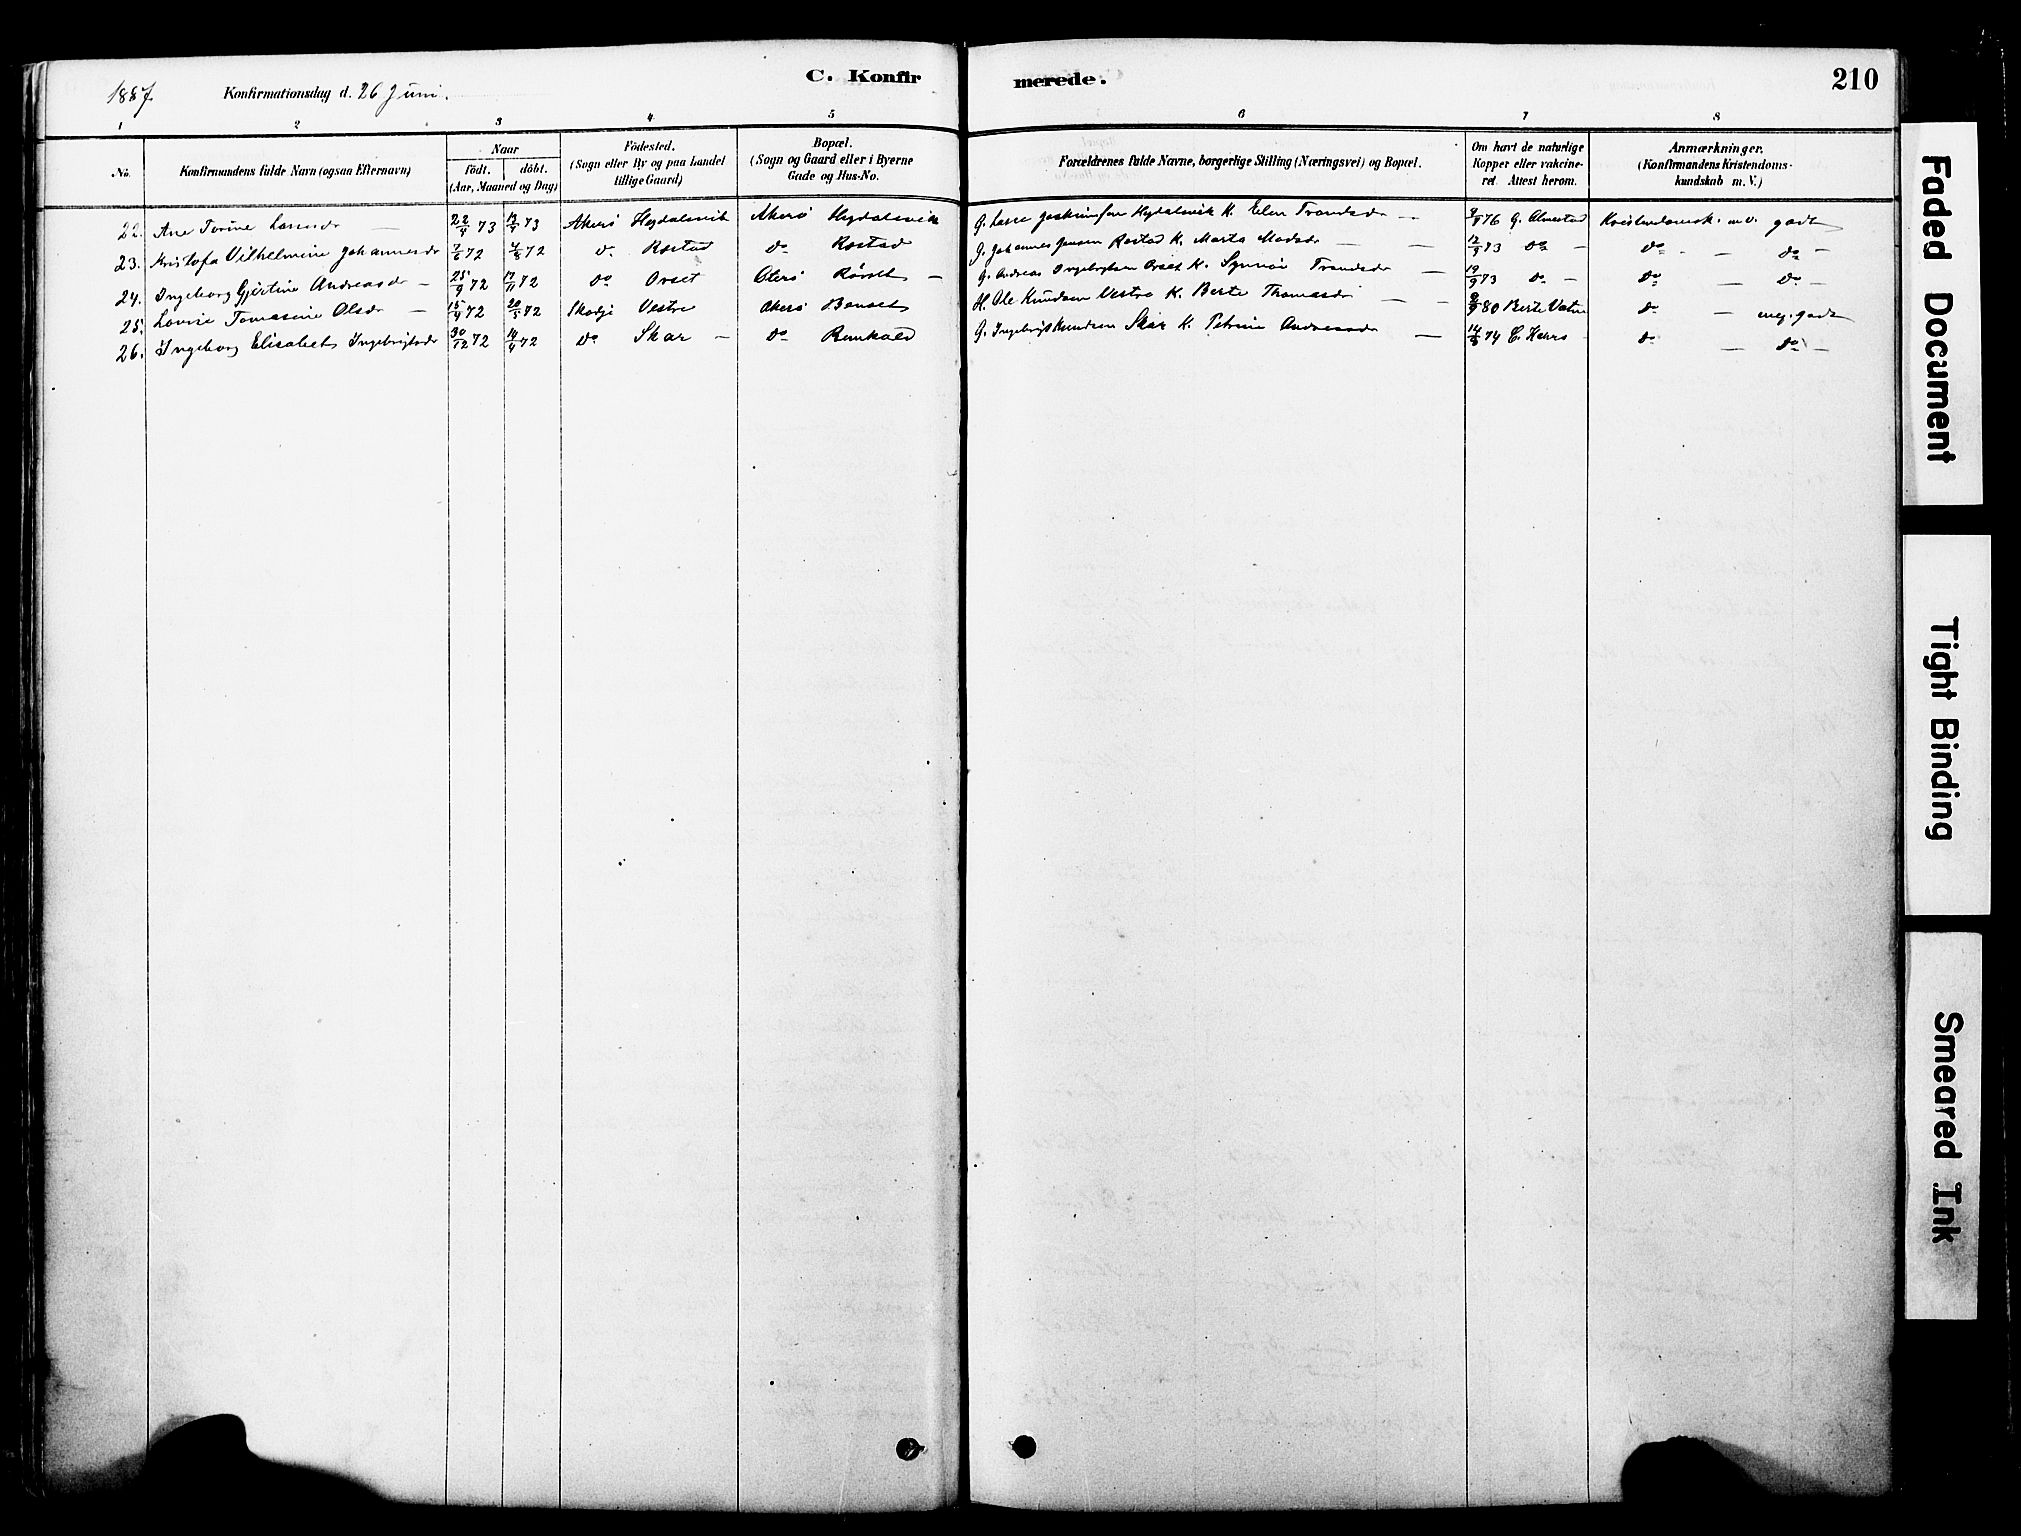 C. Konfir
merede.
210
1887
Konfirmationsdag d. 26 Juni.
1 2 3 4 5 6 7 8
No.
Konfirmandens fulde Navn (ogsaa Efternavn)
Naar
født. døbt.
(Aar, Maaned og Dag)
Fødested.
(Sogn eller By og paa Landet
tillige Gaard)
Bopæl.
(Sogn og Gaard eller i Byerne
Gade og Hus-No.
Forældrenes fulde Navne, borgerlige Stilling (Næringsvei) og Bopæl.
Om havt de naturlige
Kopper eller vakcine-
ret. Attest herom.
Anmærkninger.
(Konfirmandens Kristendoms-
kundskab m. V.)
22. Ane Larsdr 22/4 73 73 Akerø Hegdalsvik Akerø Hegdalsvik G. Lasse Hegdalsvik K. Elen Trondsdr 76 G. Kristendomsk. m.v. godt
23. Kristofa Vilhelmine Johannesdr 72 72 do Rostad do Rostad G. Johannes Jensen Rostad K. Marta Madsdr 73 do do do
24. Ingeborg Gjertine Andreasdr 25/9 72 17/11 72 do Orset G. Andreas Ingebrigtsen Orset K. Synnøv Trondsdr 73 do do do
25. Lovise Tomasine Olsdr 15/4 72 20/5 72 Skodje Vestre Akerø H. Ole Knudsen Vestre K. Berte Thomasdr 80 Berte Vatne do meg. godt
26. Ingeborg Elisabet Ingebrigtsdr 30/12 72 72 do Skar do G. Ingebrigt Knudsen Skar K. Petrine Andreasdr 74 do do
Faded Document
Tight Binding
Smeared Ink